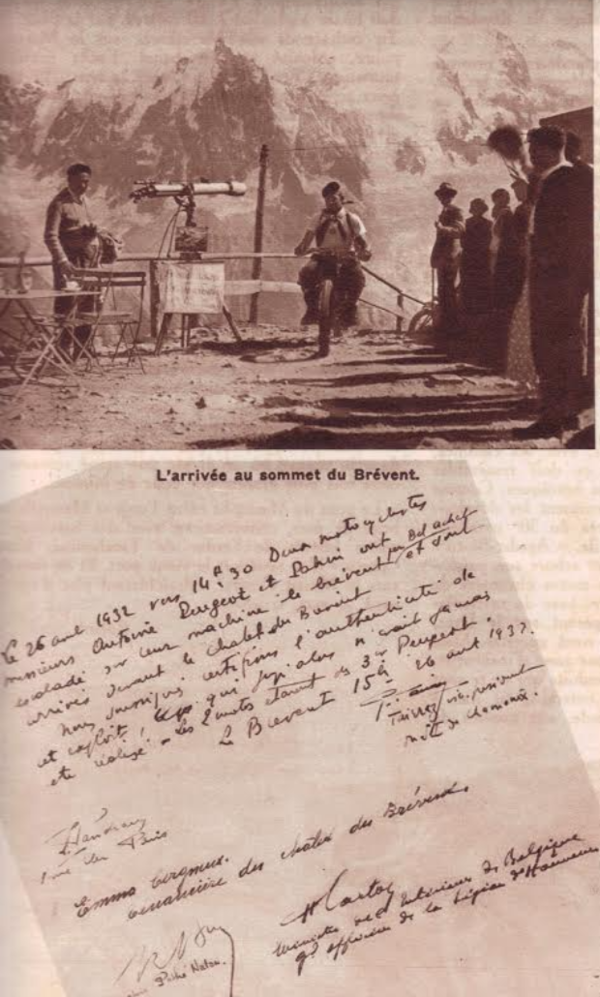 L'arrivée au sommet du Brévent.
Le 26 aout 1932 vers 14h30 Deux motocyclistes
messieurs Antoine Peugeot et ont par Bel achat
escaladé sur leur machine le brévent et sont
arrivés devant le chalet du Brévent
Nous soussignés certifions l'authenticité de
cet exploit! qui jusqu'alors n'avait jamais
été réalisé - Les 2 motos étaient des Peugeot.
Le Brévent 15h 26 aout 1932.
vice président
de chamonix.
1 rue
Emma
tenancière des chalets du Brévent.
Ministre de l'Intérieur de Belgique
gd officier de la Légion d'Honneur
Pathé Natan.